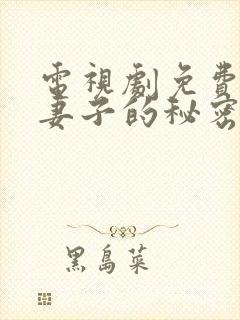 電視劇免費
妻子的秘密
黑島菜